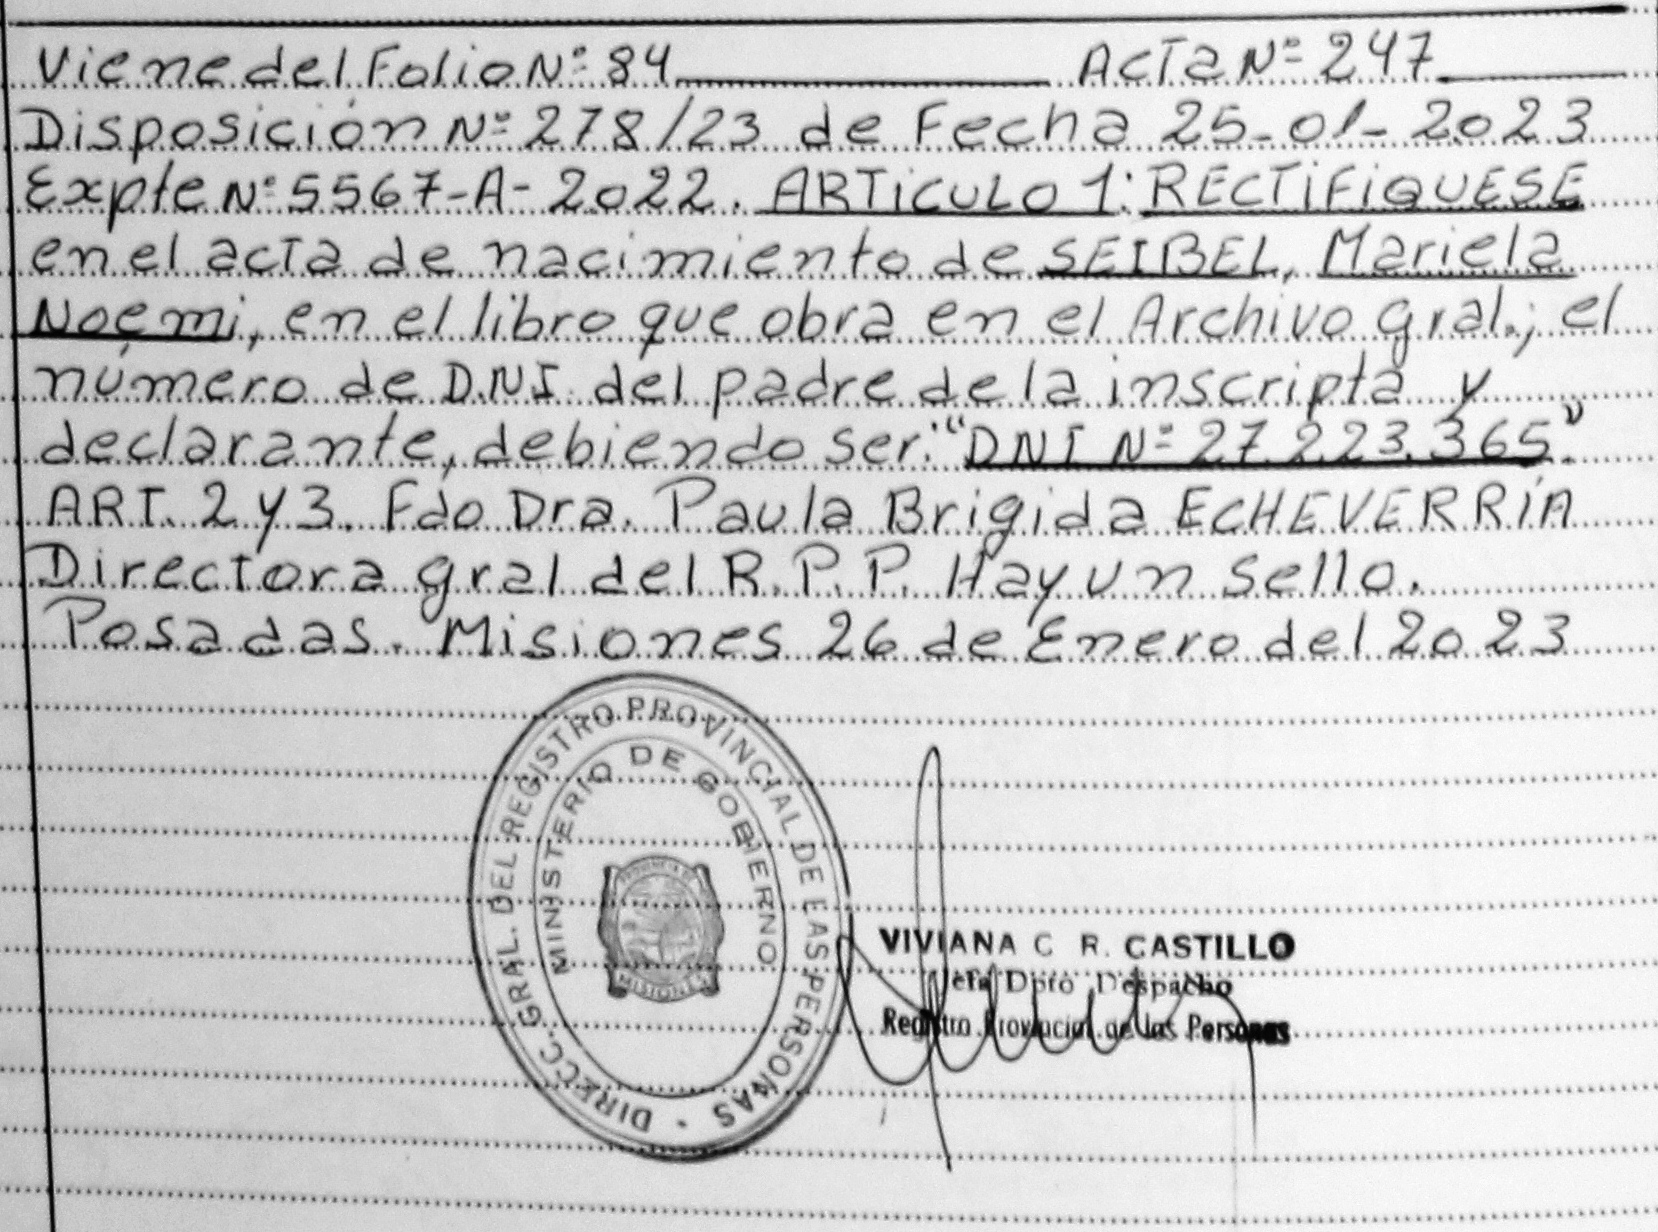 Viene del Folio Nº 84 Acta Nº 247
Disposición Nº 278/23 de Fecha 25-01-2023
Expte Nº 5567-A-2022. ARTICULO 1: RECTIFIQUESE
en el acta de nacimiento de SEIBEL, Mariela
Noemi, en el libro que obra en el Archivo gral.; el
número de D.N.I. del padre de la inscripta y
declarante, debiendo ser: "DNI Nº 27.223.365".
ART. 2 y 3. Fdo Dra. Paula Brigida ECHEVERRÍA
Directora gral del R.P.P. Hay un sello.
Posadas. Misiones 26 de Enero del 2023
DIRECC. GRAL. DEL REGISTRO PROVINCIAL DE LAS PERSONAS
MINISTERIO DE GOBIERNO
PROVINCIA DE
MISIONES
VIVIANA C R. CASTILLO
Jefa Dpto Despacho
Registro Provincial de las Personas